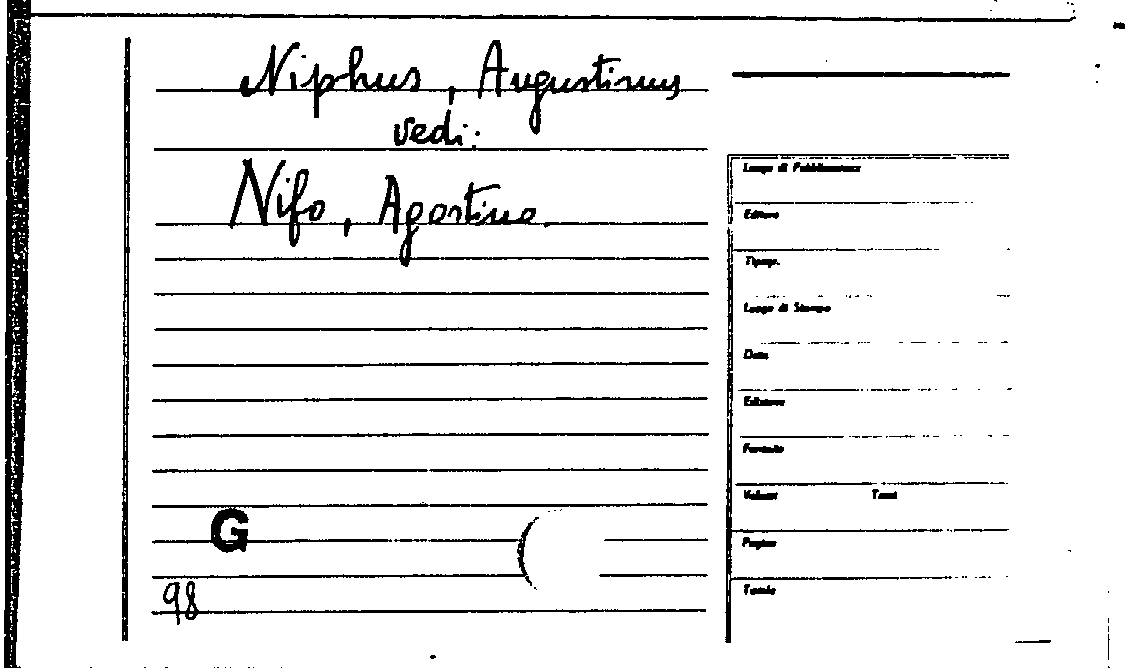 Niphus, Augustinus
vedi:
Nifo, Agostino.
Luogo di Pubblicazione
Editore
Tipogr.
Luogo di Stampa
Data
Edizione
Formato
Volumi Tomi
Pagine
Tavole
G
98